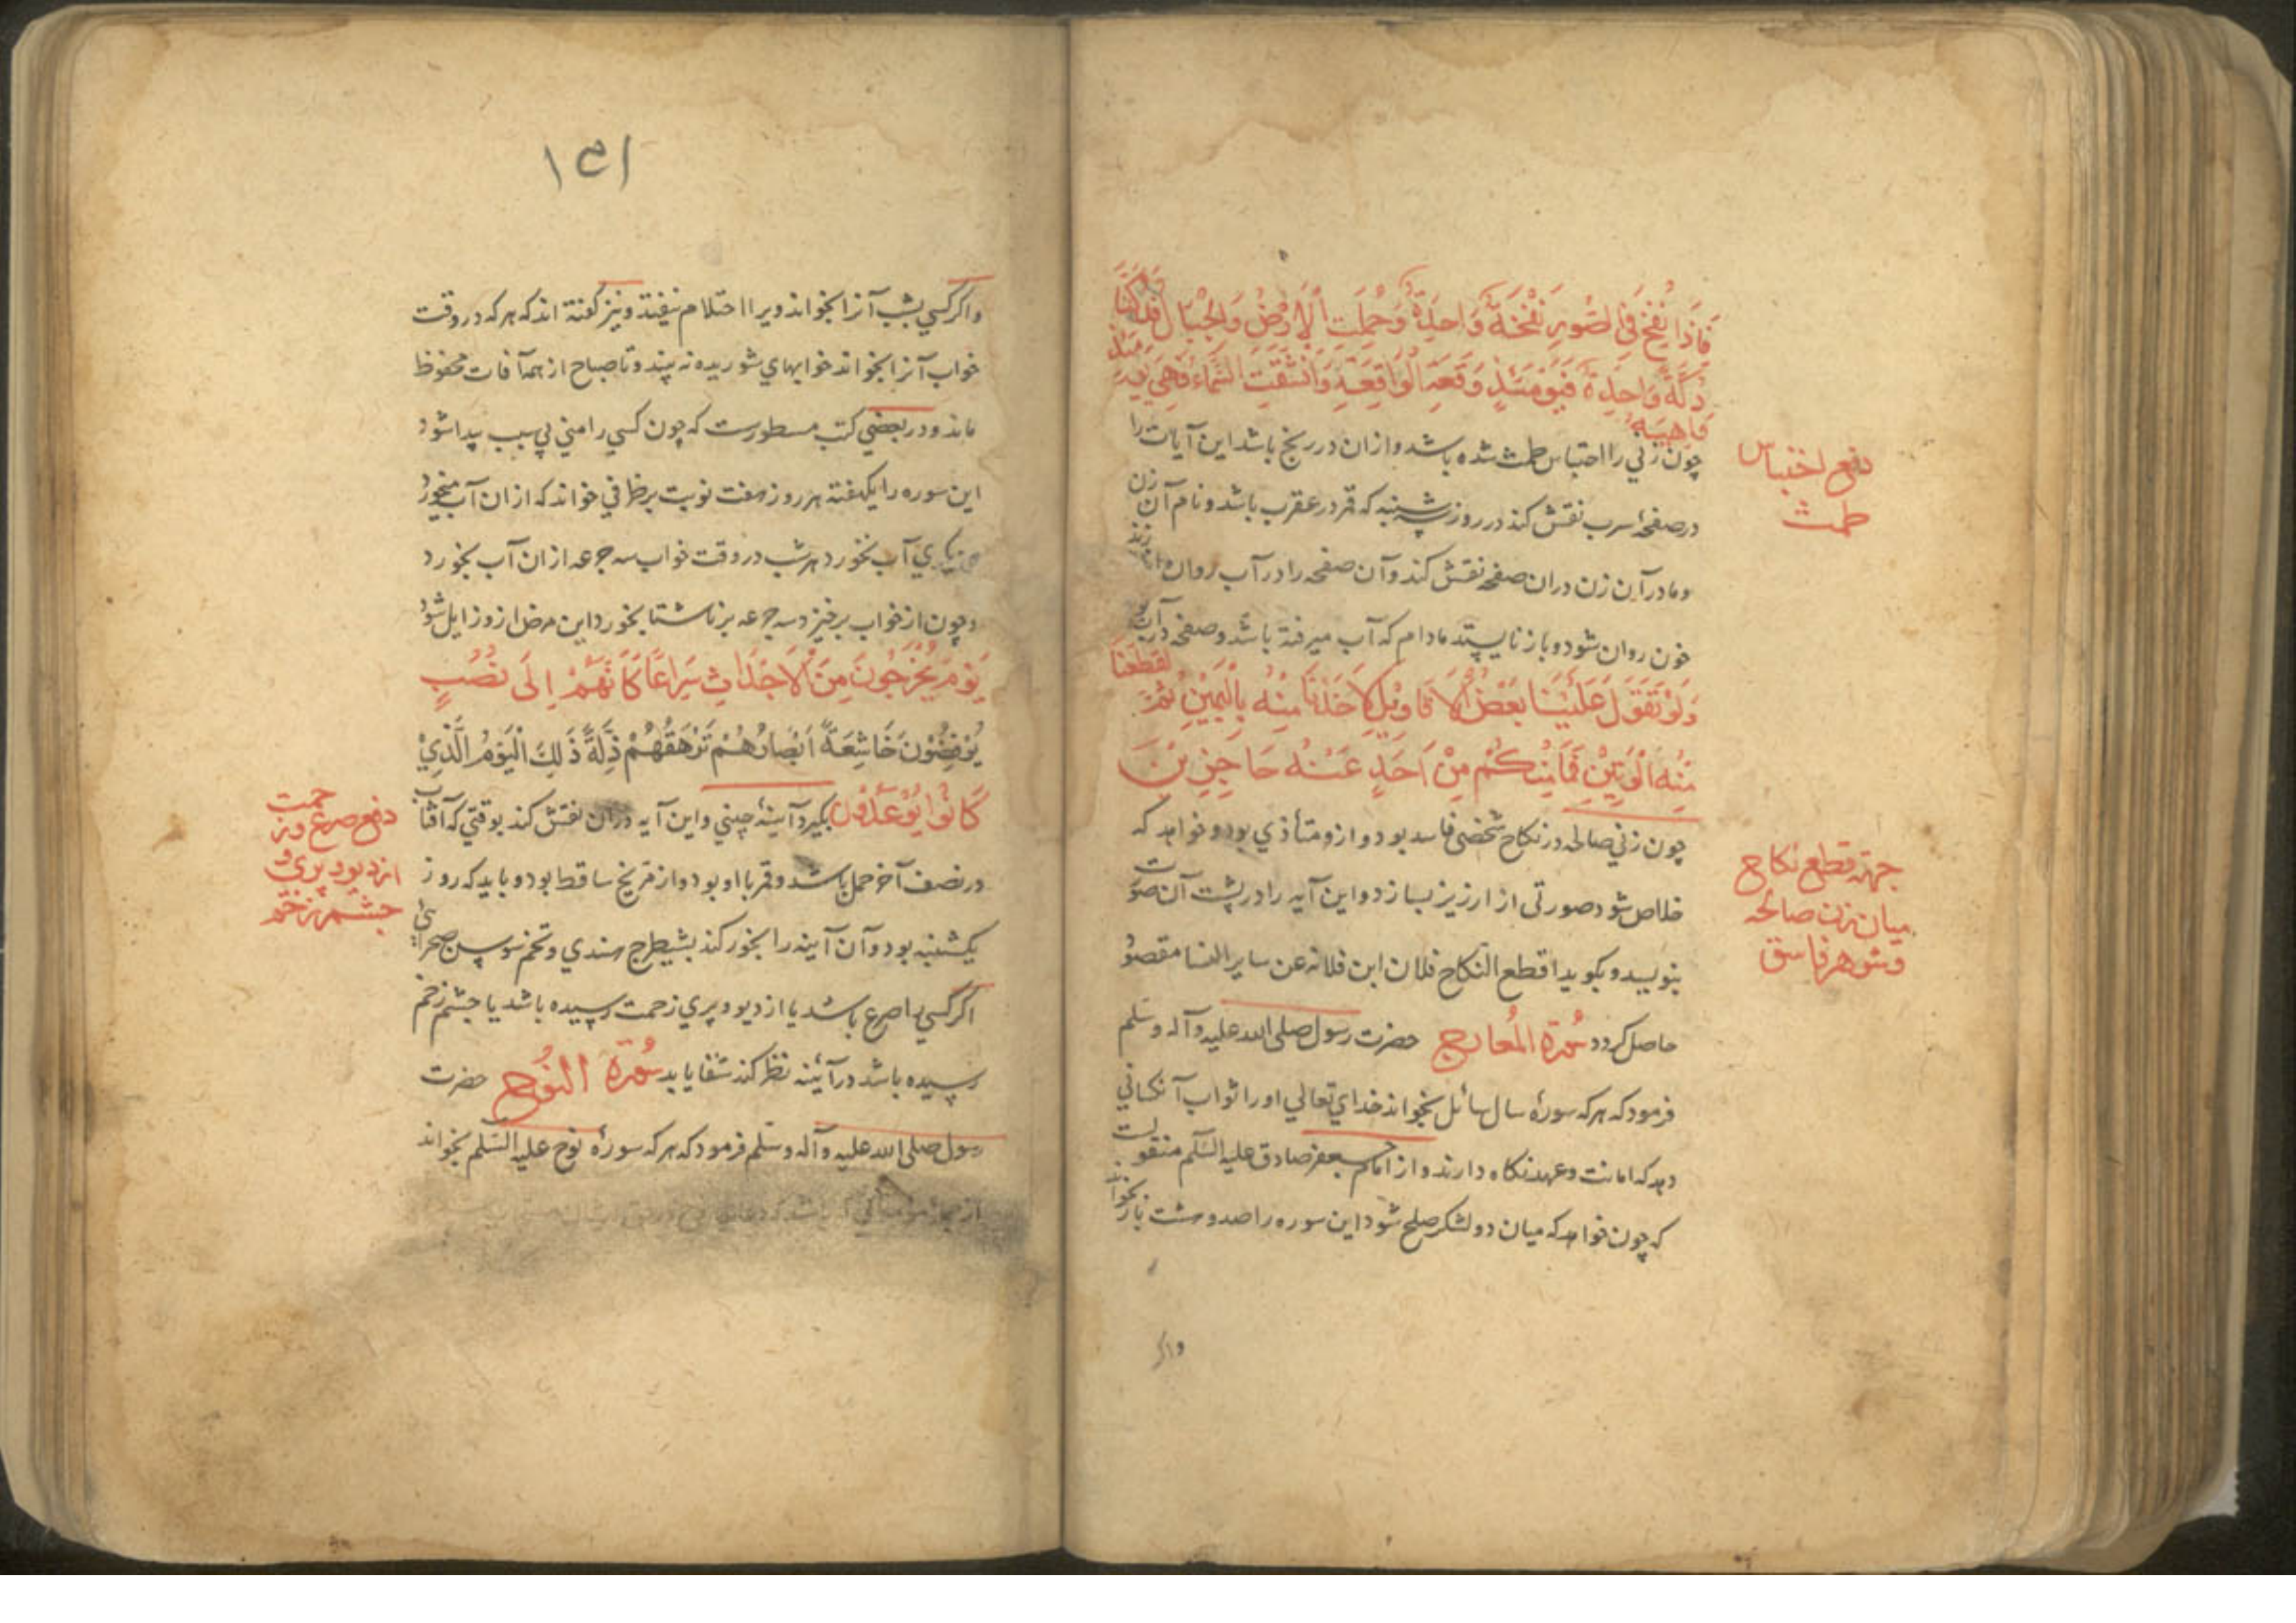 فَاِذَا نُفِخَ فِي الصُّورِ نَفْخَةٌ وَاحِدَةٌ وَحُمِلَتِ الْاَرْضُ وَالْجِبَالُ فَدُكَّتَا
دَكَّةً وَاحِدَةً فَيَوْمَئِذٍ وَقَعَتِ الْوَاقِعَةِ وَانْشَقَّتِ السَّمَاءُ فَهِيَ يَوْمَئِذٍ
وَاهِيَةٌ
چون زني را احتباس طمث شده باشد و ازان در رنج باشد اين آيات را
در صفحهٔ سرب نقش كند در روز شنبه كه قمر در عقرب باشد و نام آن زن
و مادر آن زن دران صفحه نقش كند و آن صفحه را در آب روان
خون روان شود و باز نايستد مادام كه آب ميرفته باشد و صفحه در آن
وَلَوْ تَقَوَّلَ عَلَيْنَا بَعْضَ الْاَقَاوِيْلِ لَاَخَذْنَا مِنْهُ بِالْيَمِيْنِ ثُمَّ لَقَطَعْنَا
مِنْهُ الْوَتِيْنَ فَمَا مِنْكُمْ مِنْ اَحَدٍ عَنْهُ حَاجِزِيْنَ
چون زني صالحه در نكاح شخصي فاسد بود و ازو متأذي بود و خواهد كه
خلاص شود صورتي از ارزيز بسازد و اين آيه را در پشت آن صورت
بنويسد و بگويد اقطع النكاح فلان ابن فلانه عن ساير النسا مقصود
حاصل كردد سُورَة المُعَارِج حضرت رسول صلى الله عليه وآله وسلم
فرمود كه هر كه سورهٔ سال سائل بخواند خداي تعالي او را ثواب آنكساني
دهد كه امانت و عهد نگاه دارند و از امام جعفر صادق عليه السلام منقولست
كه چون خواهد كه ميان دو لشكر صلح شود اين سوره را صد و هشت بار بخواند
واكر
دفع احتباس
طمث
جهة قطع نكاح
ميان زن صالحه
و شوهر فاسق
١٣١
و اكر كسي بشب آنرا بخواند ويرا احتلام نيفتد و نيز گفته اند كه هر كه در وقت
خواب آنرا بخواند خوابهاي شوريده نه بيند و تا صباح از همه آفات محفوظ
ماند و در بعضي كتب مسطورست كه چون كسي را مني بي سبب پيدا شود
اين سوره را يكهفته هر روز هفت نوبت بر ظرفي خواند كه ازان آب ميخورد
آب بخورد هر شب در وقت خواب سه جرعه ازان آب بخورد
و چون از خواب برخيزد سه جرعه بر ناشتا بخورد اين مرض ازو زايل شود
يَوْمَ يَخْرُجُونَ مِنَ الْاَجْدَاثِ سِرَاعًا كَاَنَّهُمْ اِلَى نُصُبٍ
يُوْفِضُوْنَ خَاشِعَةً اَبْصَارُهُمْ تَرْهَقُهُمْ ذِلَّةٌ ذَلِكَ الْيَوْمُ الَّذِيْ
كَانُوْا يُوْعَدُوْن بگيرد آينهٔ چيني و اين آيه دران نقش كند بوقتي كه آفتاب
در نصف آخر حمل باشد و قمر با او بود و از مريخ ساقط بود و بايد كه روز
يكشنبه بود و آن آينه را بخور كند بشيطرج هندي و تخم سوسن صحرائي
اكر كسي را صرع باشد يا از ديو و پري زحمت رسيده باشد يا چشم زخم
رسيده باشد در آئينه نظر كند شفا يابد سُورَة النُوح حضرت
رسول صلى الله عليه وآله وسلم فرمود كه هر كه سورهٔ نوح عليه السلم بخواند
دفع صرع و زحمت
از ديو و پري و
چشم زخم